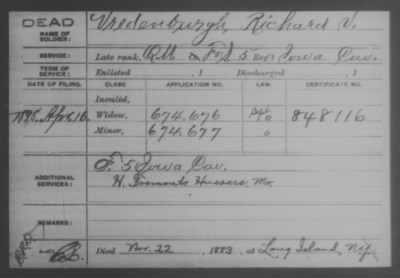 DEAD
NAME OF SOLDIER:
Vredenburgh, Richard V.
SERVICE:
Late rank, Q.M. & F & S 5 Regt Iowa Cav.
TERM OF SERVICE:
Enlisted , 1 Discharged , 1
DATE OF FILING. CLASS. APPLICATION NO. LAW. CERTIFICATE NO.
Invalid,
1898. Apr. 16. Widow, 674.676 848116
Minor, 674.677
ADDITIONAL SERVICES:
F. 5 Iowa Cav.
H. Fremonts Hussars, Mo.
REMARKS:
Died Nov. 22, 1883, at Long Island, N.Y.